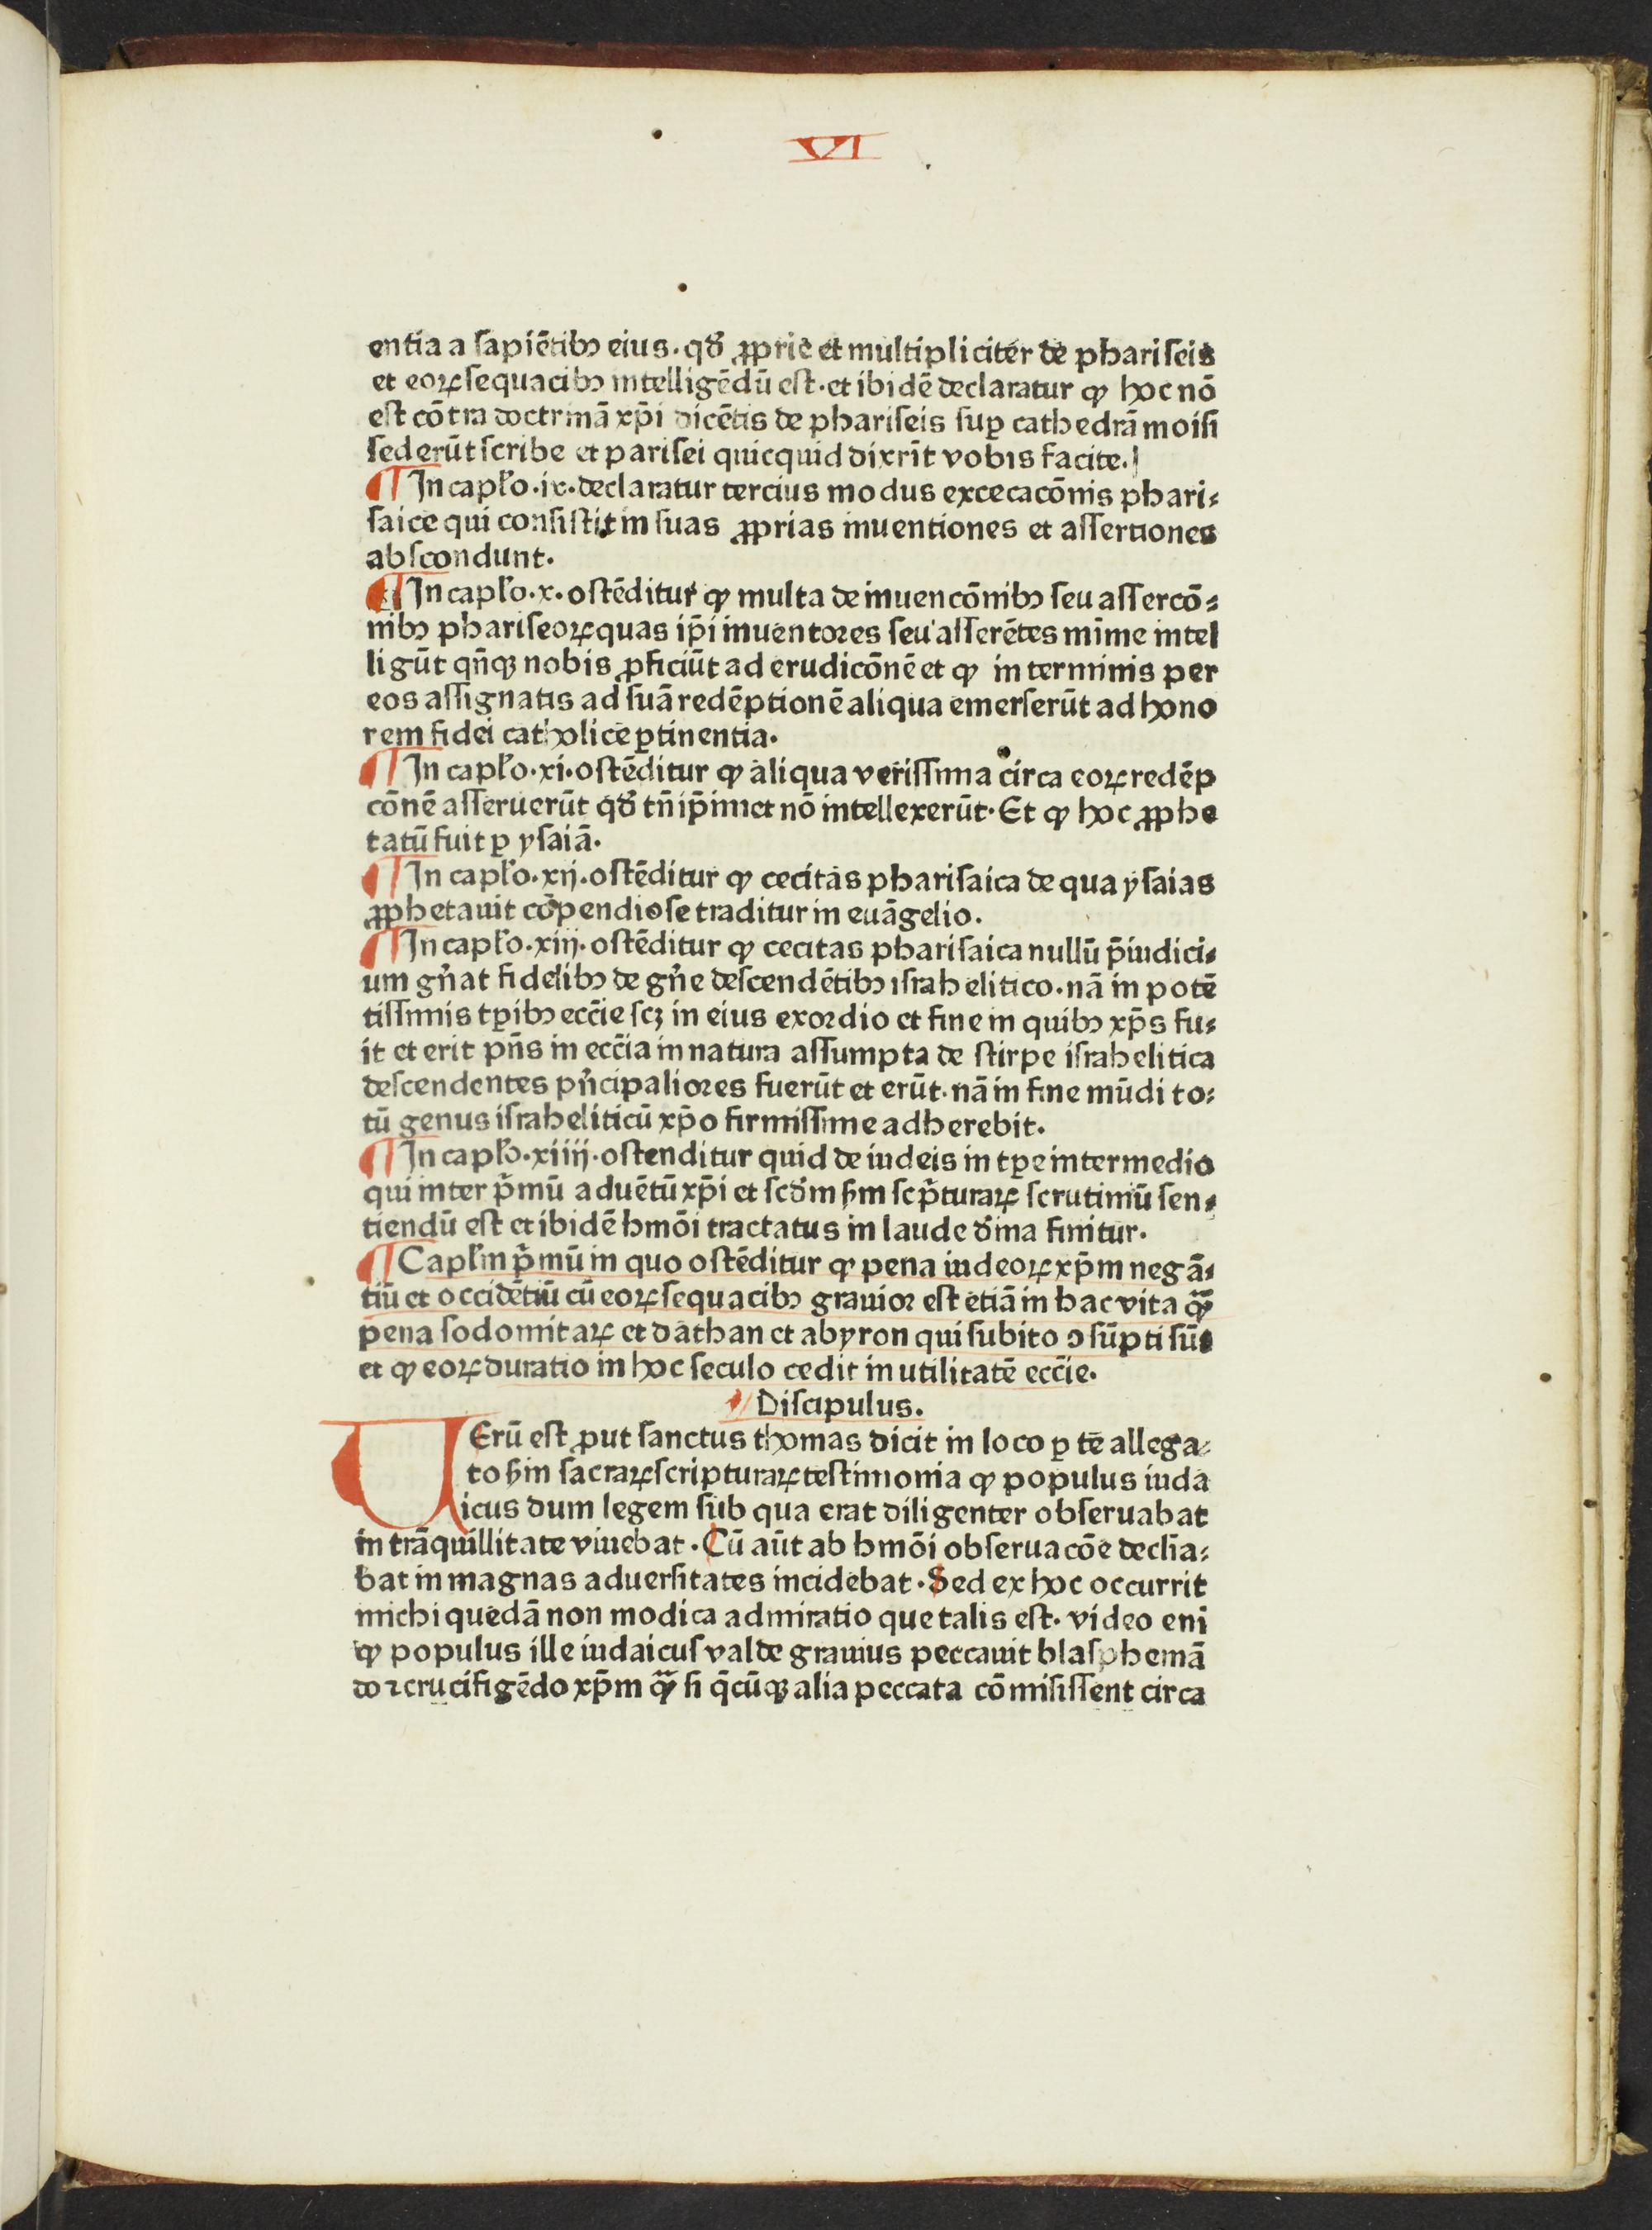 VI
entia a sapiētibꝰ eius. qđ ꝓprie et multipliciter de phariseis
et eoꝝ sequacibꝰ intelligēdū est. et ibidē declaratur ꝙ hoc nō
est cōtra doctrinā xp̄i dicētis de phariseis sup̱ cathedrā moisi
sederūt scribe et parisei quicquid dixrīt vobis facite.
¶ In capło .ix. declaratur tercius modus excecacōnis phari⸗
saice qui consistit in suas ꝓprias inuentiones et assertiones
abscondunt.
¶ In capło .x. ostēditur ꝙ multa de inuencōnibꝰ seu assercō⸗
nibꝰ phariseoꝝ quas ip̄i inuentores seu asserētes mīme intel
ligūt qn̄qꝫ nobis ꝓficiūt ad erudicōnē et ꝙ in terminis per
eos assignatis ad suā redēptionē aliqua emerserūt ad hono
rem fidei catholice ꝑtinentia.
¶ In capło .xi. ostēditur ꝙ aliqua verissima circa eoꝝ redēp
cōnē asseruerūt qđ tn̄ ip̄imet nō intellexerūt. Et ꝙ hoc ꝓphe
tatū fuit ꝑ ysaiā.
¶ In capło .xij. ostēditur ꝙ cecitas pharisaica de qua ysaias
ꝓphetauit cōpendiose traditur in euāgelio.
¶ In capło .xiij. ostēditur ꝙ cecitas pharisaica nullū p̄iudici⸗
um gn̄at fidelibꝰ de gn̄e descendētibꝰ israhelitico. nā in potē
tissimis tꝑibꝰ ecc̄ie scꝫ in eius exordio et fine in quibꝰ xp̄s fu⸗
it et erit pn̄s in ecc̄ia in natura assumpta de stirpe israhelitica
descendentes pn̄cipaliores fuerūt et erūt. nā in fine mūdi to⸗
tū genus israheliticū xp̄o firmissime adherebit.
¶ In capło .xiiij. ostenditur quid de iudeis in tꝑe intermedio
qui inter p̄mū aduētū xp̄i et scđm ẜm sc̄pturaꝝ scrutiniū sen⸗
tiendū est et ibidē hmōi tractatus in laude đina finitur.
¶ Capłm p̄mū in quo ostēditur ꝙ pena iudeoꝝ xp̄m negā⸗
tiū et occidētiū cū eoꝝ sequacibꝰ grauior est etiā in hac vita ꝙ̄
pena sodomitaꝝ et dathan et abyron qui subito ↄsūpti sūt
et ꝙ eoꝝ duratio in hoc seculo cedit in utilitatē ecc̄ie.
Discipulus.
VErū est ꝓut sanctus thomas dicit in loco ꝑ te allega⸗
to ẜm sacraꝝ scripturaꝝ testimonia ꝙ populus iuda
icus dum legem sub qua erat diligenter obseruabat
in trāquillitate viuebat. Cū aūt ab hmōi obseruacōe declīa⸗
bat in magnas aduersitates incidebat. Sed ex hoc occurrit
michi quedā non modica admiratio que talis est. video eni
ꝙ populus ille iudaicus valde grauius peccauit blasphemā
do ⁊ crucifigēdo xp̄m ꝙ̄ si q̄cūqꝫ alia peccata cōmisissent circa